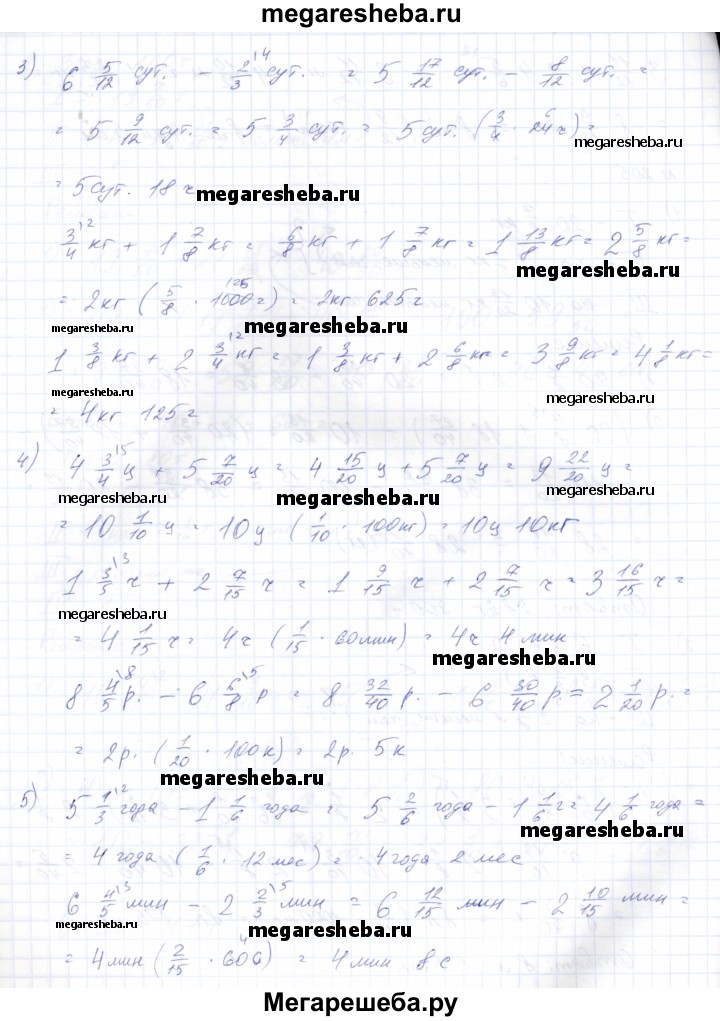 megaresheba.ru
3) 6 5/12 сут. - 2/3\4 сут. = 5 17/12 сут. - 8/12 сут. =
= 5 9/12 сут. = 5 3/4 сут. = 5 сут. (3/4 · 24 6 ч) =
megaresheba.ru
= 5 сут. 18 ч
megaresheba.ru
3/4\2 кг + 1 7/8 кг = 6/8 кг + 1 7/8 кг = 1 13/8 кг = 2 5/8 кг =
megaresheba.ru
= 2 кг (5/8 · 1000 125 г) = 2 кг 625 г
megaresheba.ru megaresheba.ru
1 3/8 кг + 2 3/4\2 кг = 1 3/8 кг + 2 6/8 кг = 3 9/8 кг = 4 1/8 кг =
megaresheba.ru megaresheba.ru
= 4 кг 125 г
4) 4 3/4\5 ц + 5 7/20 ц = 4 15/20 ц + 5 7/20 ц = 9 22/20 ц =
megaresheba.ru megaresheba.ru megaresheba.ru
= 10 1/10 ц = 10 ц (1/10 · 100 кг) = 10 ц 10 кг
1 3/5\3 ч + 2 7/15 ч = 1 9/15 ч + 2 7/15 ч = 3 16/15 ч =
megaresheba.ru
= 4 1/15 ч = 4 ч (1/15 · 60 мин) = 4 ч 4 мин
megaresheba.ru
8 4/5\8 р. - 6 6/8\5 р = 8 32/40 р. - 6 30/40 р. = 2 1/20 р. =
= 2 р. (1/20 · 100 к) = 2 р. 5 к
megaresheba.ru
5) 5 1/3\2 года - 1 1/6 года = 5 2/6 года - 1 1/6 г = 4 1/6 года =
megaresheba.ru
= 4 года (1/6 · 12 мес) = 4 года 2 мес
6 4/5\3 мин - 2 2/3\5 мин = 6 12/15 мин - 2 10/15 мин =
megaresheba.ru megaresheba.ru megaresheba.ru
= 4 мин (2/15 · 60 4 с) = 4 мин 8 с
Мегарешеба.ру